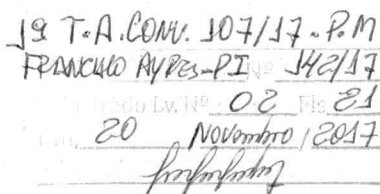 1º T.A.CONV. 107/17-P.M
FRANCISCO AYRES-PI 142/17
Lv. Nº 02 Fls 21
20 Novembro / 2017